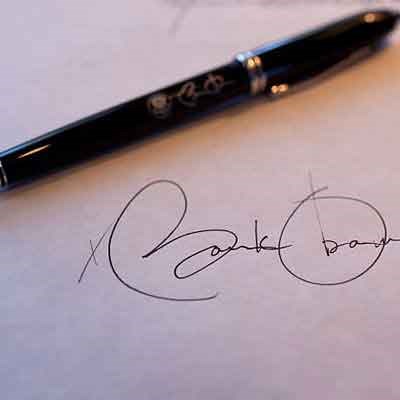 x Barack Obam